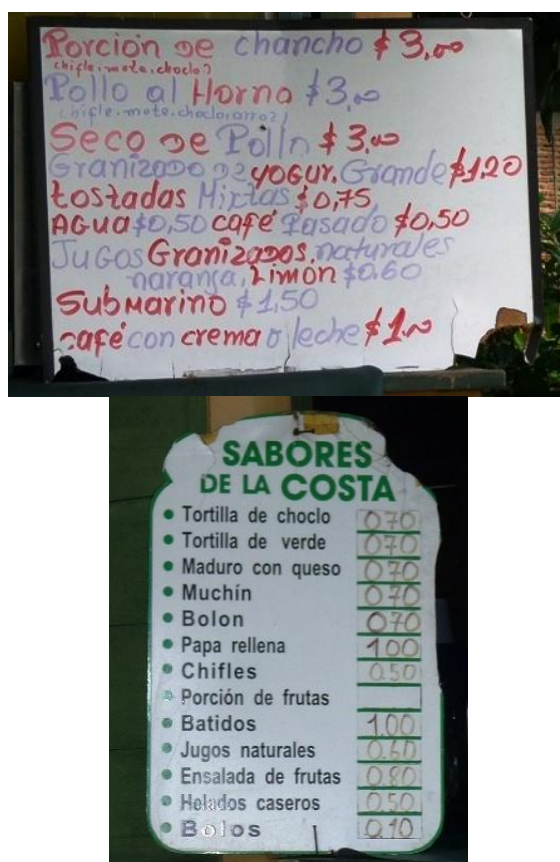 Porcion de chancho $ 3,00
(chifle.mote.choclo)
Pollo al Horno $3,00
(chifle.mote.choclo,arroz)
Seco de Pollo $ 3,00
Granizado de yogur. Grande $1,20
tostadas Mixtas $0,75
AGUA $0,50 café Pasado $0,50
Jugos Granizados, naturales
naranja, Limon $0.60
Submarino $1,50
café con crema o leche $1,00
SABORES
DE LA COSTA
Tortilla de choclo 070
Tortilla de verde 070
Maduro con queso 070
Muchín 070
Bolon 070
Papa rellena 100
Chifles 0.50
Porción de frutas
Batidos 1.00
Jugos naturales 0.60
Ensalada de frutas 0.80
Helados caseros 0.50
Bolos 0.10